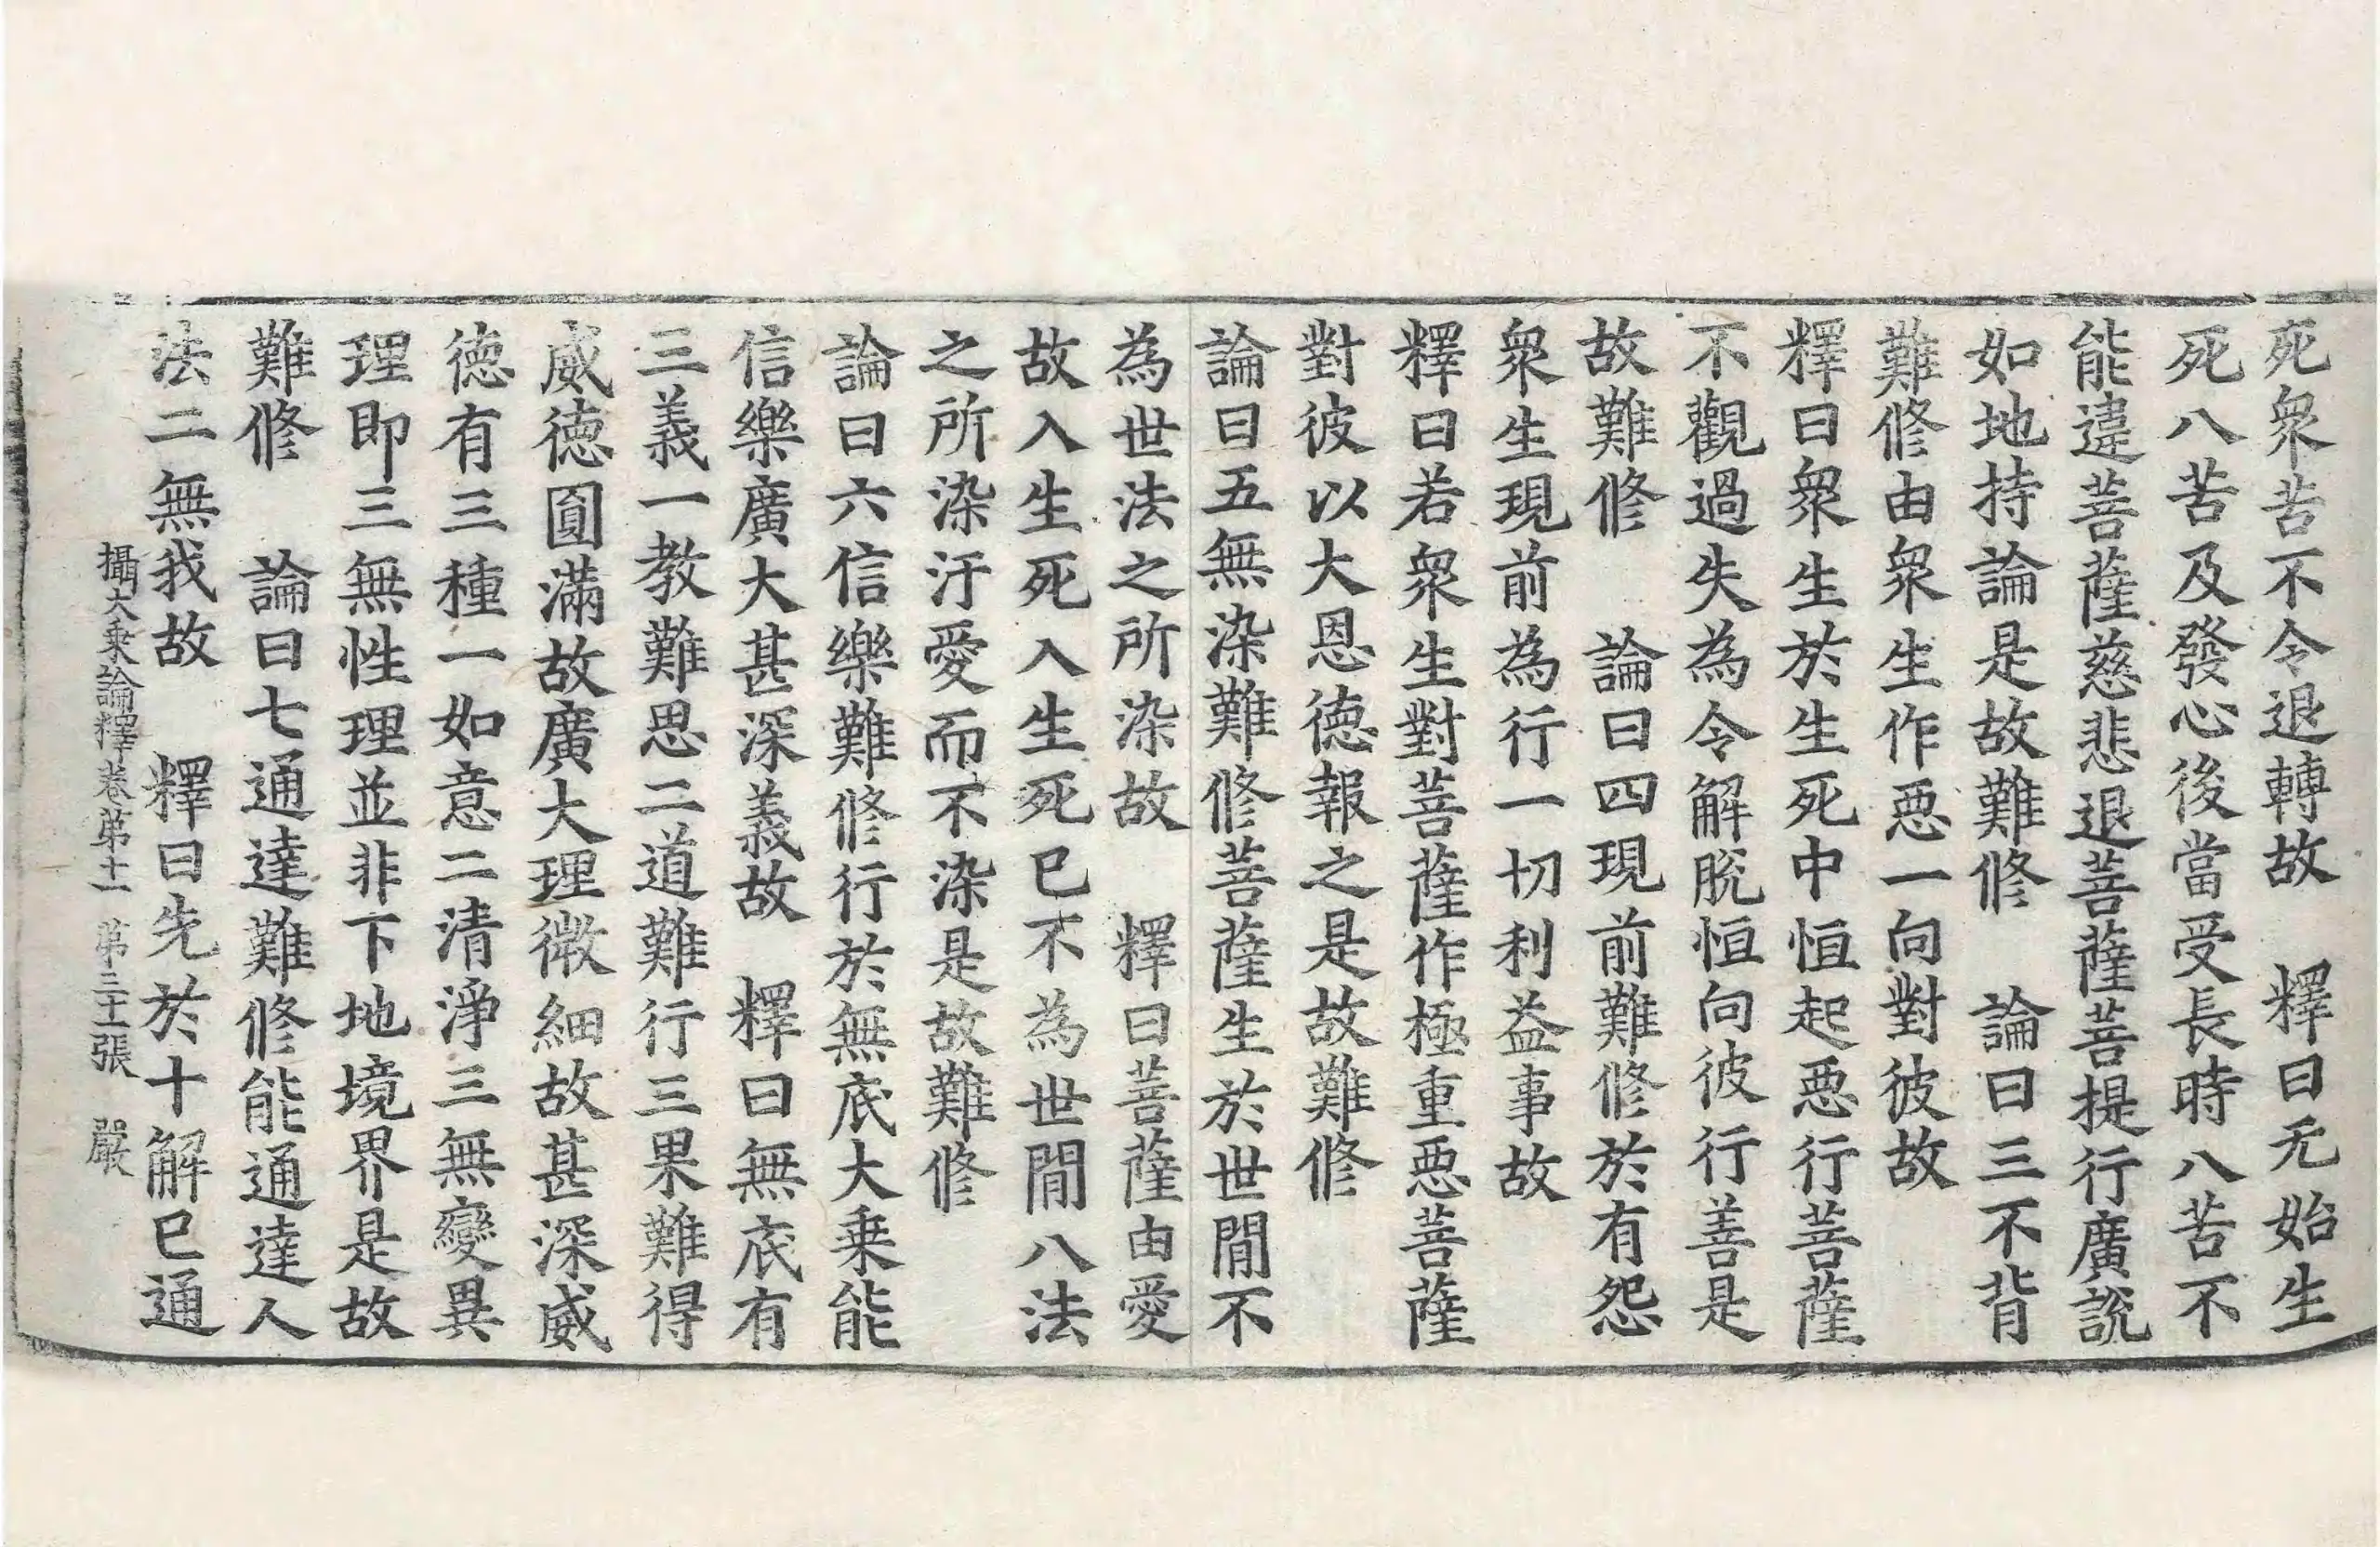 死衆苦不令退轉故　釋曰无始生
死八苦及發心後當受長時八苦不
能違菩薩慈悲退菩薩菩提行廣說
如地持論是故難修　論曰三不背
難修由衆生作惡一向對彼故
釋曰衆生於生死中恒起惡行菩薩
不觀過失為令解脫恒向彼行善是
故難修　論曰四現前難修於有怨
衆生現前為行一切利益事故
釋曰若衆生對菩薩作極重惡菩薩
對彼以大恩德報之是故難修
論曰五無染難修菩薩生於世間不
為世法之所染故　釋曰菩薩由愛
故入生死入生死已不為世間八法
之所染汙愛而不染是故難修
論曰六信樂難修行於無底大乗能
信樂廣大甚深義故　釋曰無底有
三義一教難思二道難行三果難得
威德圓滿故廣大理微細故甚深威
德有三種一如意二清淨三無變異
理即三無性理並非下地境界是故
難修　論曰七通達難修能通達人
法二無我故　釋曰先於十解已通
攝大乗論釋卷第十一　第三十張　嚴